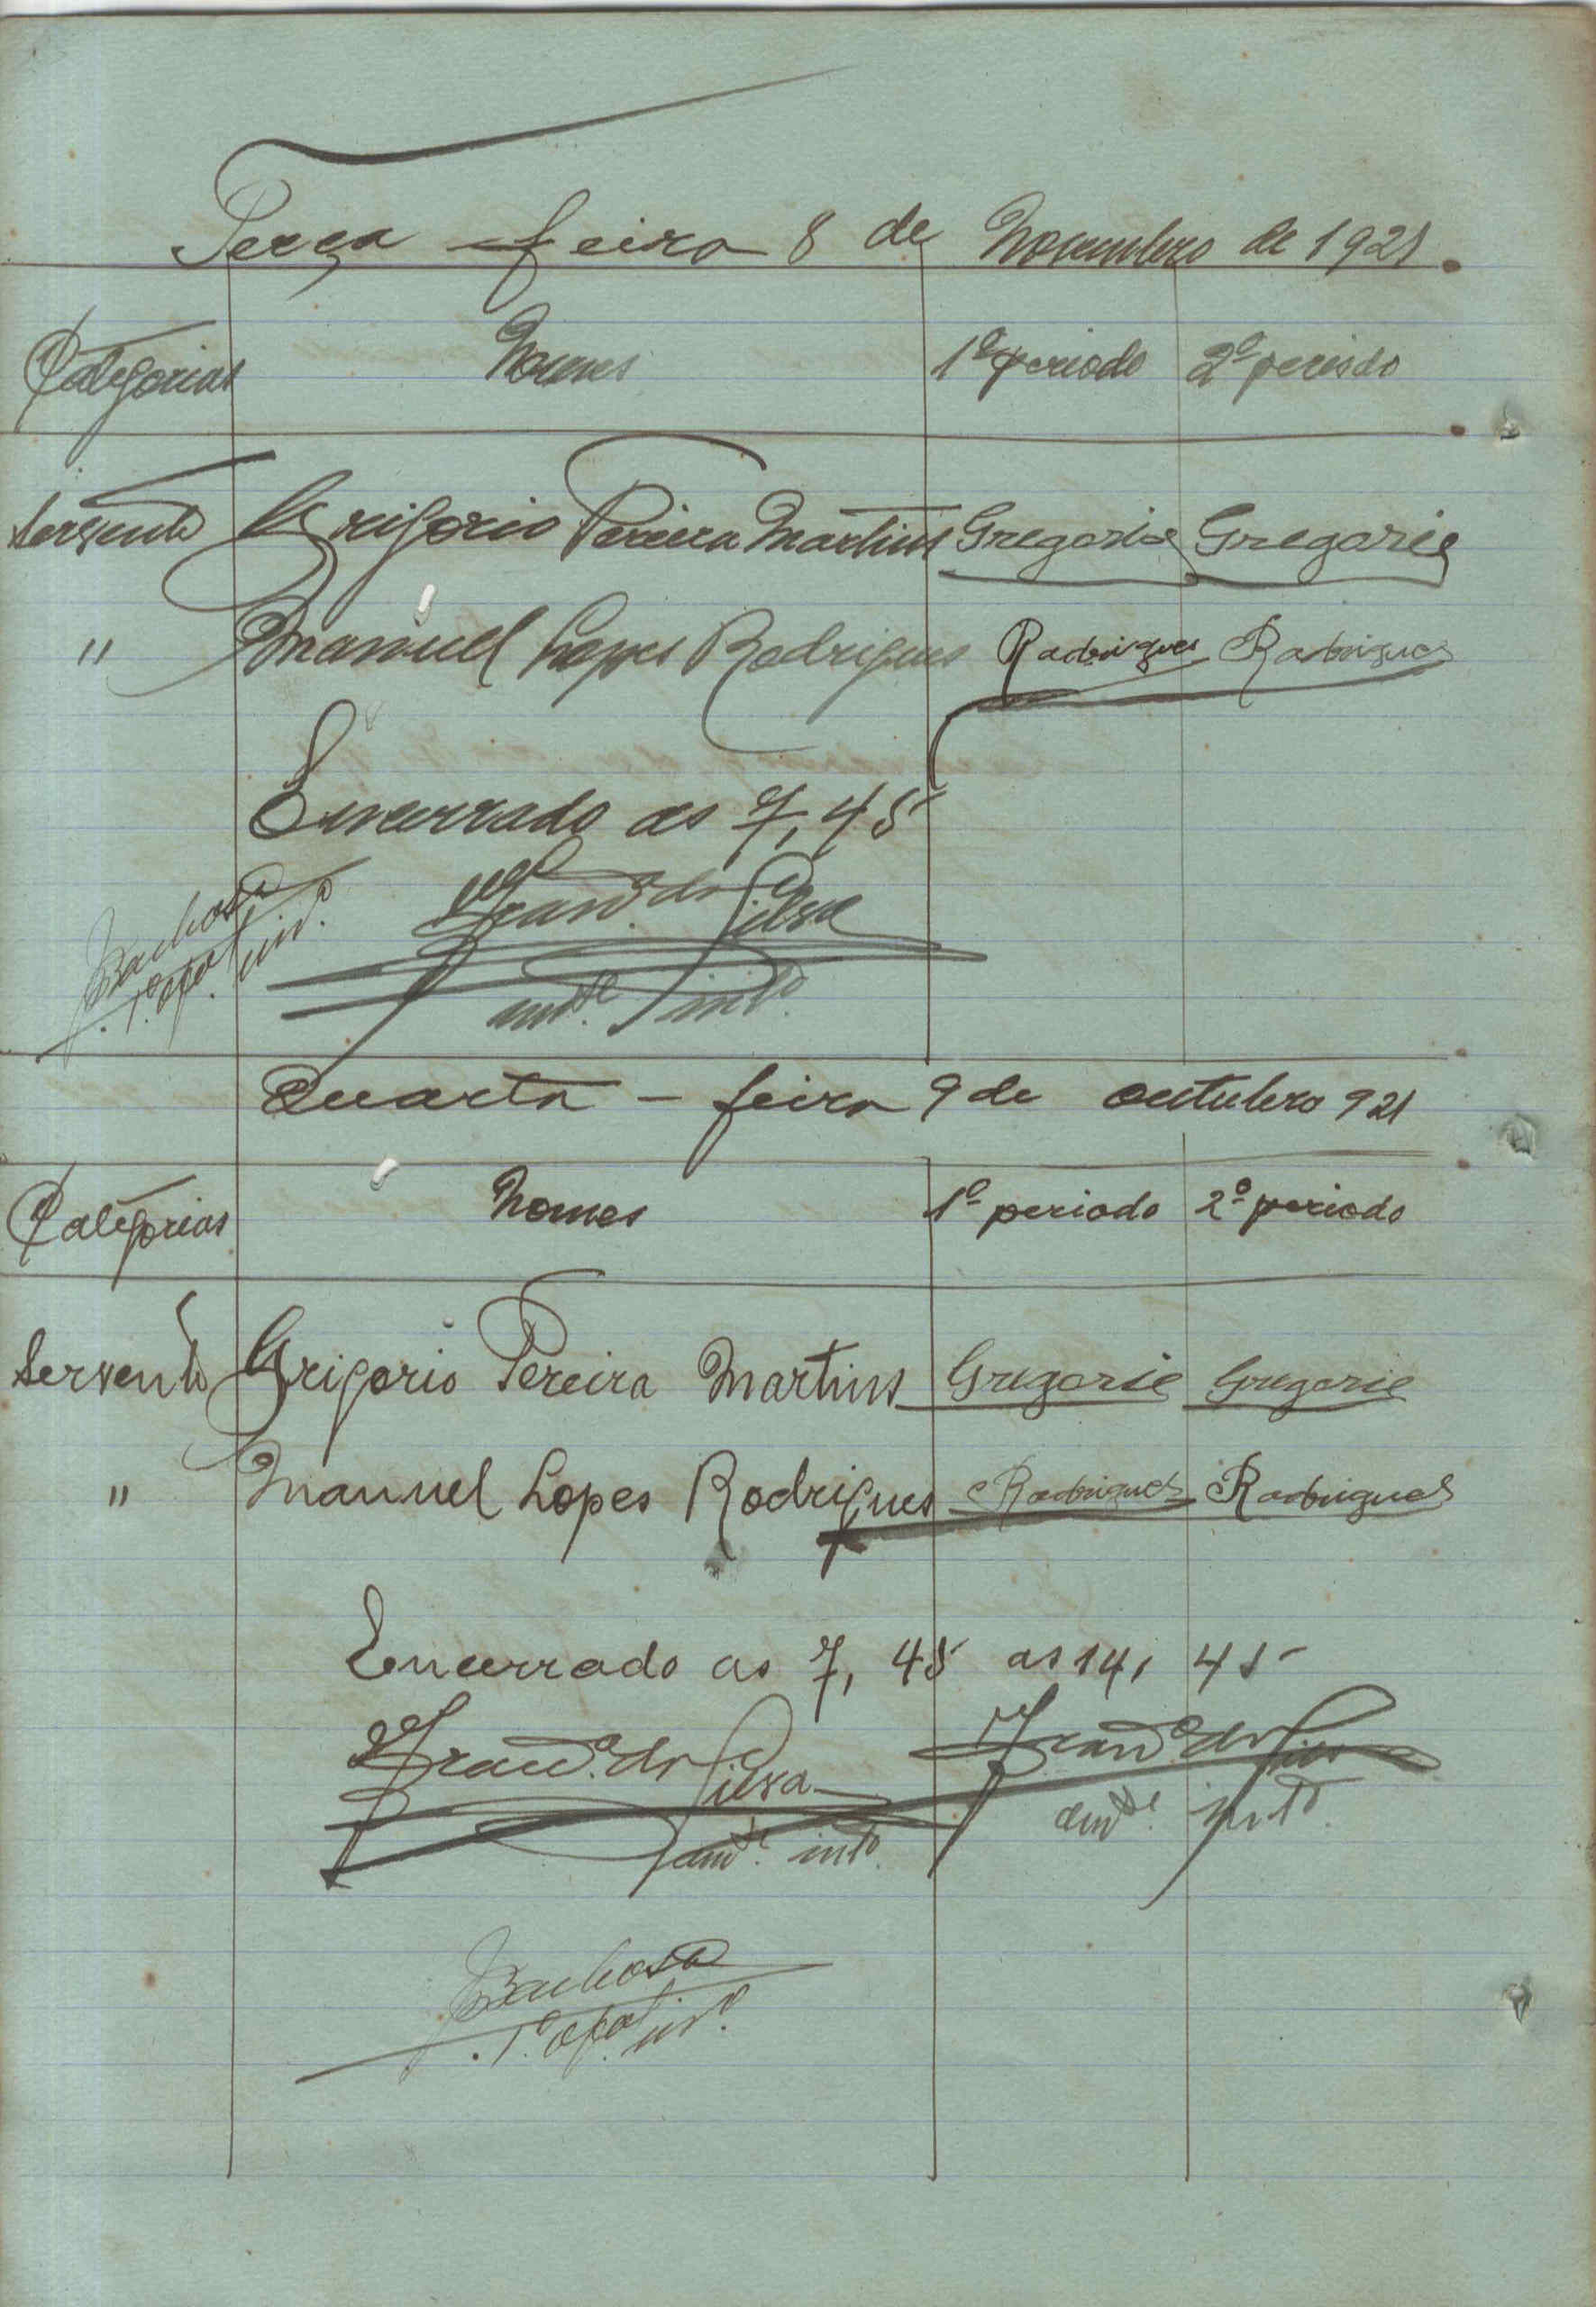 Terça - feira 8 de Novembro de 1921.
Categorias Nomes 1º periodo 2º periodo
Servente Grigorio Pereira Martins Gregorio Gregorio
" Manuel Lopes Rodrigues Rodrigues Rodrigues
Encerrado as 7,45
Franco. da Silva
Barbosa
1º int.º
Quarta - feira 9 de outubro 921
Categorias Nomes 1º periodo 2º periodo
Servente Grigorio Pereira Martins Gregorio Gregorio
" Manuel Lopes Rodrigues Rodrigues Rodrigues
Encerrado as 7, 45 as 14, 45
da Silva da Silva
int.º int.º
Barbosa
1º